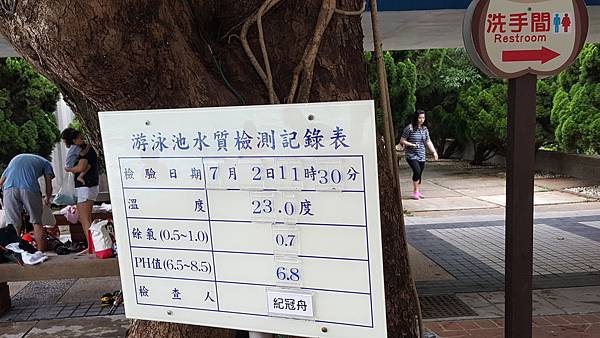 洗手間
Restroom
游泳池水質檢測記錄表
檢驗日期 7月2日11時30分
溫度 23.0度
餘氯(0.5~1.0) 0.7
PH值(6.5~8.5) 6.8
檢查人 紀冠舟